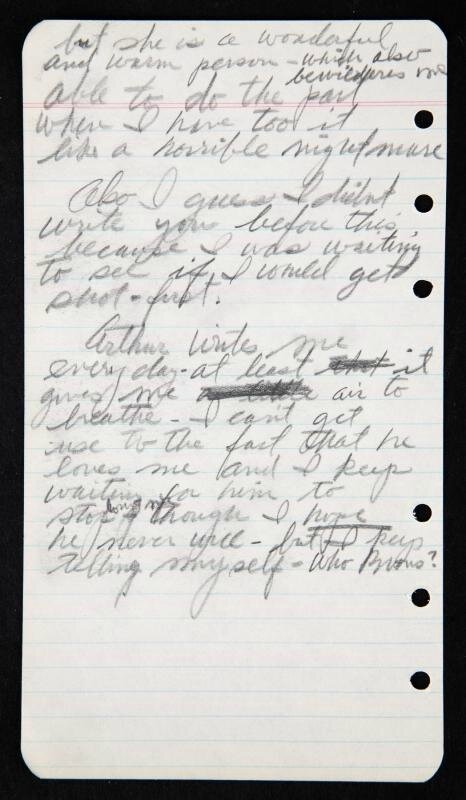 but she is a wonderful
and warm person - which also
bewilders me
able to do the part
when I have too it
like a horrible nightmare
Also I guess I didnt
write you before this
because I was waiting
to see if I would get
shot - first.
Arthur writes me
every day - at least it
gives me a little air to
breathe - I can't get
use to the fact that he
loves me and I keep
waiting for him to
stop loving me though I hope
he never will - but I keep
telling myself - who knows?